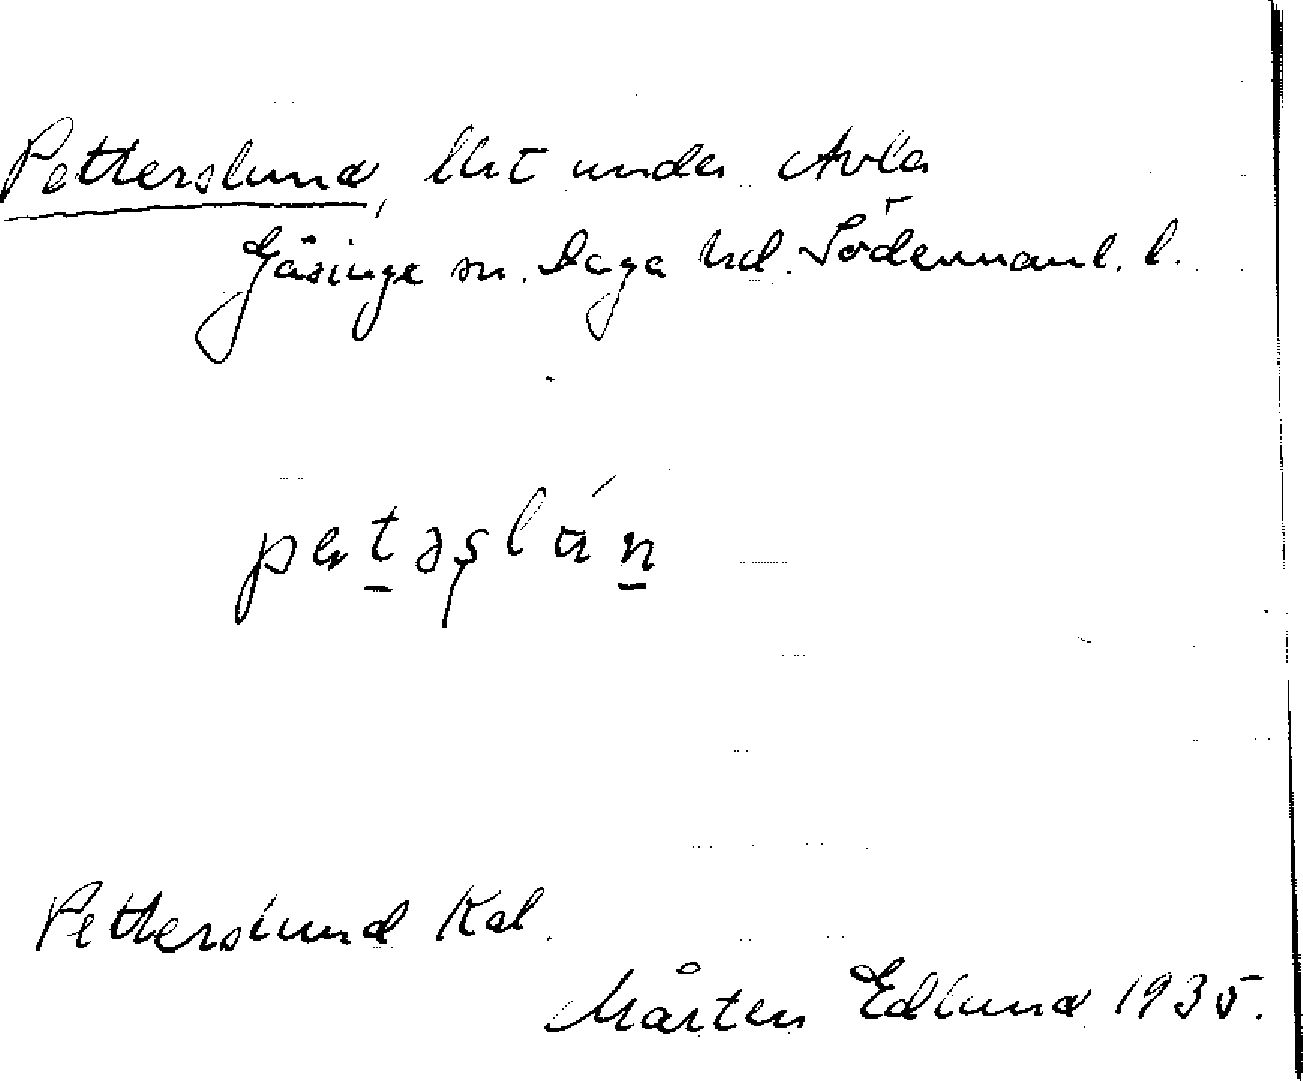 Petterslund, lht under Avla
Gåsinge sn. Daga hd. Södermanl. l.
petəşlún
Petterslund Kal.
Mårten Edlund 1935.